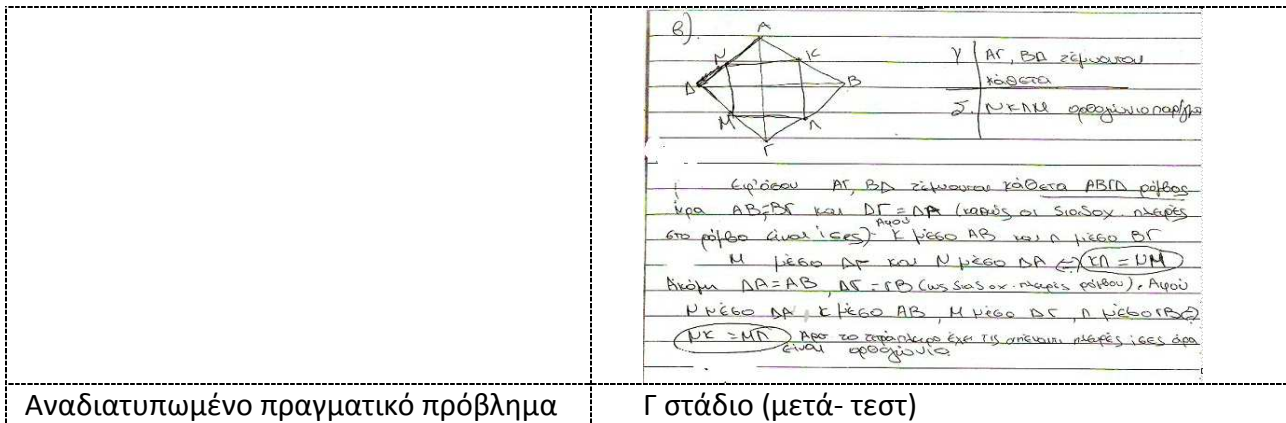 β).
Α
Ν
Κ
Δ
Β
Μ
Λ
Γ
Υ | ΑΓ, ΒΔ τέμνονται
κάθετα
Σ. | ΝΚΛΜ ορθογώνιο παρ/μο
Εφ'όσον ΑΓ, ΒΔ τέμνονται κάθετα ΑΒΓΔ ρόμβος
άρα ΑΒ=ΒΓ και ΔΓ=ΔΑ (καθώς οι διαδοχ. πλευρές
στο ρόμβο είναι ίσες). Αφού Κ μέσο ΑΒ και Λ μέσο ΒΓ
Μ μέσο ΔΓ και Ν μέσο ΔΑ ⇔ ΚΛ = ΝΜ
Ακόμη ΔΑ=ΑΒ, ΔΓ=ΓΒ (ως διαδοχ. πλευρές ρόμβου). Αφού
Ν μέσο ΔΑ, Κ μέσο ΑΒ, Μ μέσο ΔΓ, Λ μέσο ΓΒ ⇔
ΝΚ = ΜΛ Άρα το τετράπλευρο έχει τις απέναντι πλευρές ίσες άρα
είναι ορθογώνιο
Αναδιατυπωμένο πραγματικό πρόβλημα
Γ στάδιο (μετά- τεστ)